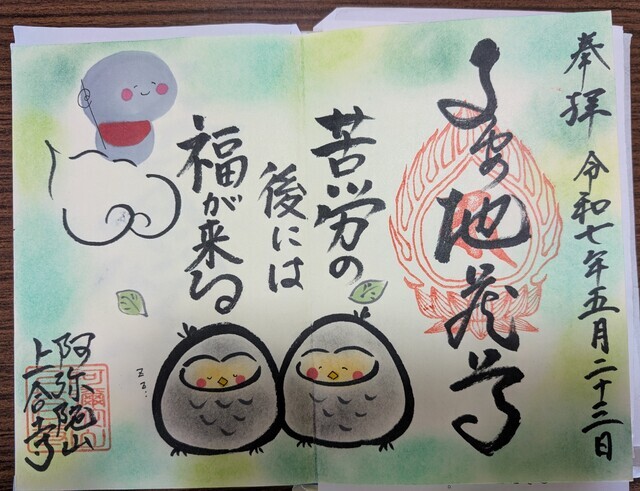 奉拝 令和七年五月二十三日
子安地蔵尊
苦労の
後には
福が来る
zz...
阿弥陀山
上合寺